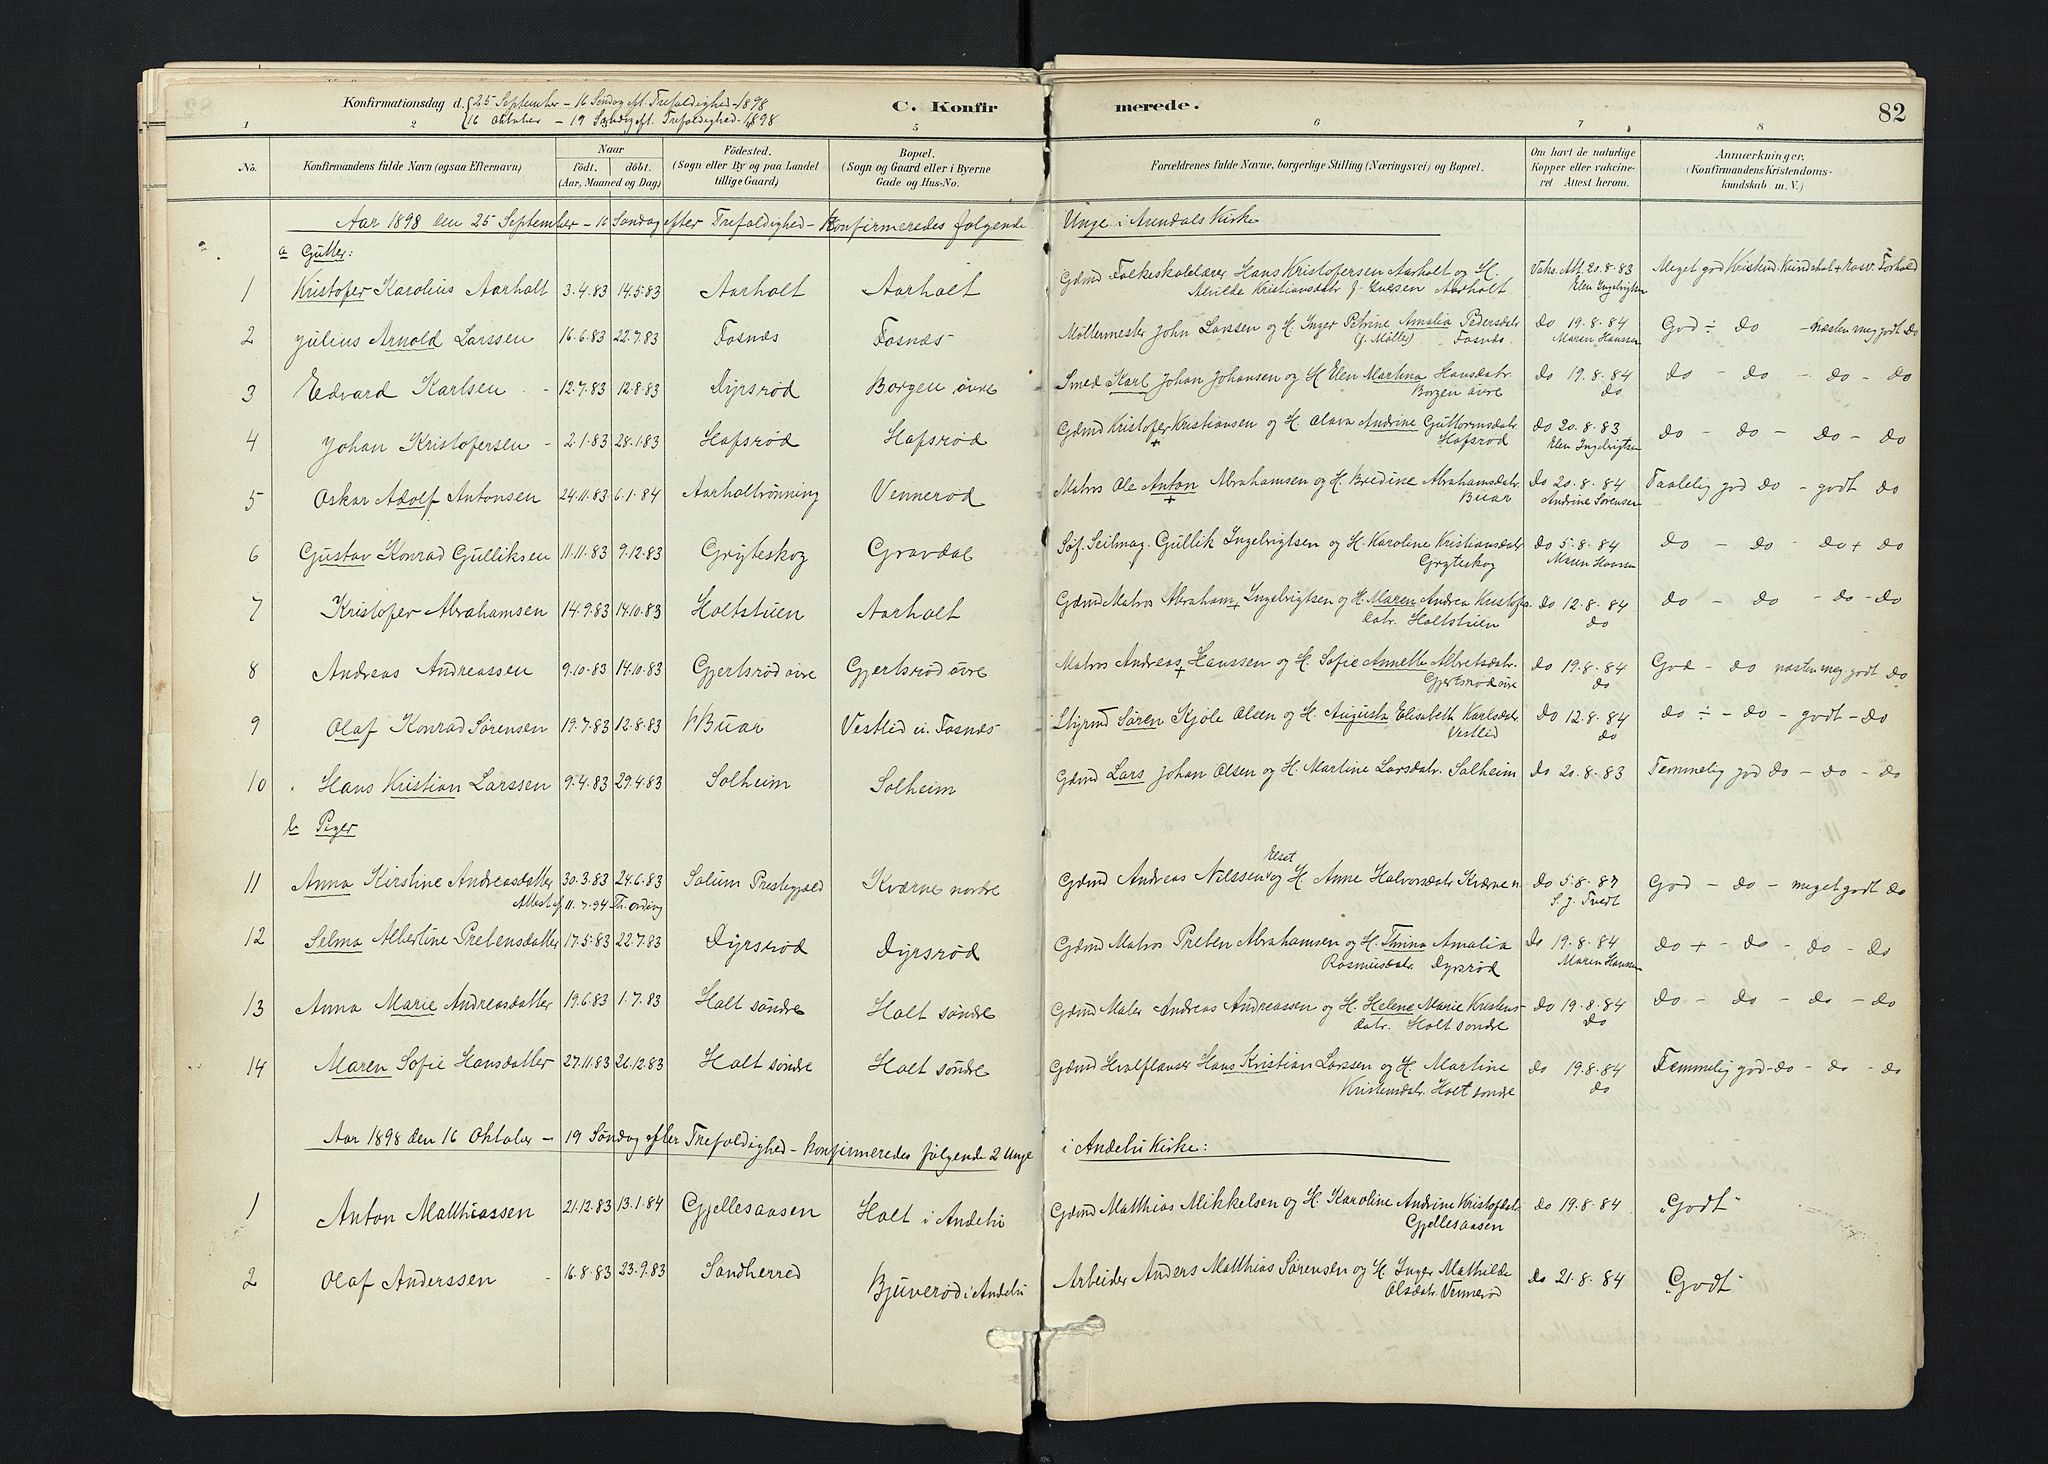 Konfirmationsdag d. 25 September – 16 Søndag eft. Trefoldighed – 1898
16 Oktober – 19 Søndag eft. Trefoldighed – 1898
C. Konfirmerede.
82
1 2 5 6 7 8
No. Konfirmandens fulde Navn (ogsaa Efternavn) Naar födt. döbt. (Aar, Maaned og Dag) Födested. (Sogn eller By og paa Landet tillige Gaard.) Bopæl. (Sogn og Gaard eller i Byerne Gade og Hus-No. Forældrenes fulde Navne, borgerlige Stilling (Næringsvei) og Bopæl. Om havt de naturlige Kopper eller vakcineret Attest herom. Anmærkninger. (Konfirmandens Kristendomskundskab m. V.)
Aar 1898 den 25 September – 16 Søndag efter Trefoldighed – Konfirmeredes følgende Unge i Kirke
a Gutter:
1 Kristofer Karolius Aarholt 3.4.83 14.5.83 Aarholt Aarholt Gdmd Folkeskolelærer Hans Kristofersen Aarholt og H. Kristiansdatr f. Aarholt Vaks. Att. 20.8.83 Elen Ingelvigtsen Meget god Kristend. Kundskab + Forhold
2 Julius Arnold Larssen 16.6.83 22.7.83 Fosnæs Fosnæs Møllermester John Larssen og H. Inger Petrine Amalia Pedersdatr (f. Møller) Fosnæs. do 19.8.84 Maren Hanssen God ÷ do – næsten meg godt do
3 Edvard Karlsen 12.7.83 12.8.83 Dyrsrød Borgen øvre Smed Karl Johan Johansen og H Elen Martina Hansdatr. Borgen øvre do 19.8.84 do do – do – do – do
4 Johan Kristofersen 2.1.83 28.1.83 Hafsrød Hafsrød Gdmd Kristofer + Kristiansen og H. Olava Andrine Guttormsdatr Hafsrød do 20.8.83 Elen Ingelvigtsen do – do – do – do
5 Oskar Adolf Antonsen 24.11.83 6.1.84 Aarholtrønning Vennerød Matros Ole Anton + Abrahamsen og H. Bredine Abrahamsdatr. Buar do 20.8.84 Andrine Sørensen Taalelig god do – godt do
6 Gustav Konrad Gulliksen 11.11.83 9.12.83 Gryteskog Gravdal Seilmag. Gullik Ingelvigtsen og H. Karoline Kristiansdatr Gryteskog do 5.8.84 Maren Hanssen do – do – do + do
7 Kristofer Abrahamsen 14.9.83 14.10.83 Holtstuen Aarholt Gdmd Matros Abraham + Ingelvigtsen og H. Maren Andrea Kristofersdatr. Holtstuen do 12.8.84 do do – do – do – do
8 Andreas Andreassen 9.10.83 14.10.83 Gjertsrød øvre Gjertsrød øvre Matros Andreas + Hanssen og H. Sofie Annette Albretsdatr. Gjertsrød øvre do 19.8.84 do God – do næsten meg godt do
9 Olaf Konrad Sørensen 19.7.83 12.8.83 Buar Vestlid u. Fosnæs Styrmd Søren Kjøle Olsen og H. Augusta Elisabeth Karlsdatr Vestlid do 12.8.84 do do ÷ – do – godt – do
10 Hans Kristian Larssen 9.4.83 29.4.83 Solheim Solheim Gdmd Lars Johan Olsen og H. Martine Larsdatr. Solheim do 20.8.83 Temmelig god do – do – do
b Piger
11 Anna Kirstine Andreasdatter 30.3.83 24.6.83 Solum Prestegjæld Kværne nordre Gdmd Andreas Nilssen og H Elset Anne Halvorsdatr Kværne n do 5.8.87 S. J. Tvedt God – do – meget godt do
Attest af 11.7.94 Th.Ording
12 Selma Albertine Prebensdatter 17.5.83 22.7.83 Dyrsrød Dyrsrød Gdmd Matros Preben Abrahamsen og H. Thrina Amalia Rasmusdatr. Dyrsrød do 19.8.84 Maren Hanssen do + – do – do – do
13 Anna Marie Andreasdatter 19.6.83 1.7.83 Holt søndre Holt søndre Gdmd Maler Andreas Andreassen og H. Helene Marie Kristensdatr. Holt søndre do 19.8.84 do do – do – do – do
14 Maren Sofie Hansdatter 27.11.83 26.12.83 Holt søndre Holt søndre Gdmd Hvalflanser Hans Kristian Larssen og H. Martine Kristensdatr. Holt søndre do 19.8.84 do Temmelig god – do – do – do
Aar 1898 den 16 Oktober – 19 Søndag efter Trefoldighed – konfirmeredes følgende 2 Unge i Andebu Kirke:
1 Anton Matthiassen 21.12.83 13.1.84 Gjellesaasen Holt i Andebu Gdmd Matthias Mikkelsen og H. Karoline Andrine Kristofdatr Gjellesaasen do 19.8.84 "Godt"
2 Olaf Anderssen 16.8.83 23.9.83 Sandherred Bjuerød i Andebu Arbeider Anders Matthias Sørensen og H. Inger Mathilde Olsdatr. Vennerød do 21.8.84 "Godt"